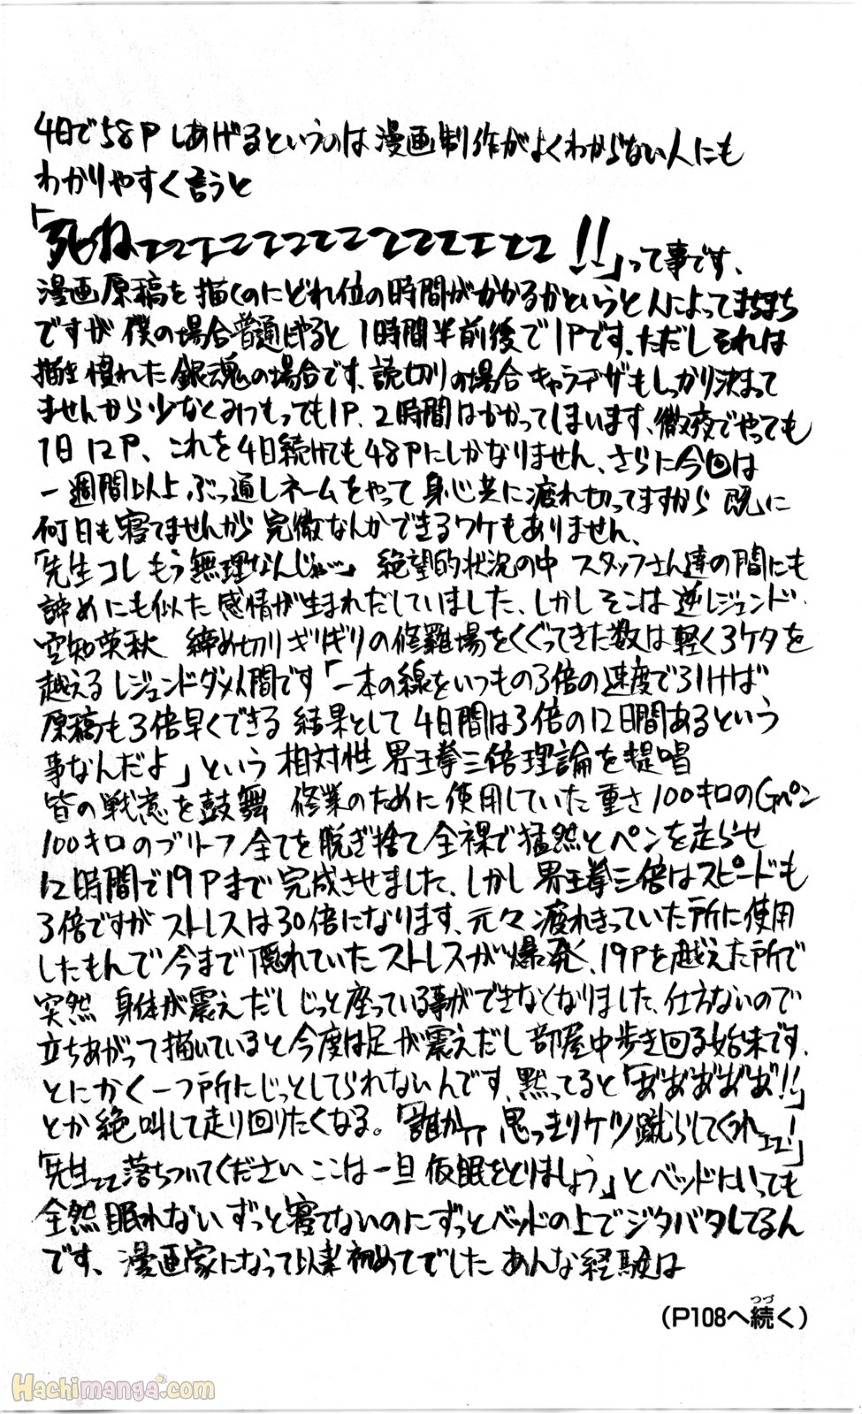 4日で58Pしあげるというのは漫画制作がよくわからない人にも
わかりやすく言うと
「死ねェェェェェェェェェェェェェ!!」って事です、
漫画原稿を描くのにどれ位の時間がかかるかというと人によってまちまち
ですが僕の場合普通にやると1時間半前後で1Pです、ただしそれは
描き慣れた銀魂の場合です、読切りの場合キャラデザもしっかり決まって
ませんから少なくみつもっても1P、2時間はかかってしまいます、徹夜でやっても
1日12P、これを4日続けても48Pにしかなりません、さらに今回は
一週間以上ぶっ通しネームをやって身心共に疲れ切ってますから既に
何日も寝てませんが完徹なんかできるワケもありません、
「先生コレもう無理なんじゃ…」絶望的状況の中スタッフさん達の間にも
諦めにも似た感情が生まれだしていました、しかしそこは逆レジェンド
空知英秋 締め切りギリギリの修羅場をくぐってきた数は軽く3ケタを
越えるレジェンドダメ人間です「一本の線をいつもの3倍の速度で引けば
原稿も3倍早くできる 結果として4日間は3倍の12日間あるという
事なんだよ」という相対性 界王拳三倍理論を提唱
皆の戦意を鼓舞 修業のために使用していた重さ100キロのGペン
100キロのブリーフ全てを脱ぎ捨て全裸で猛然とペンを走らせ
12時間で19Pまで完成させました、しかし界王拳三倍はスピードも
3倍ですがストレスは30倍になります、元々疲れきっていた所に使用
したもんで今まで隠れていたストレスが爆発、19Pを越えた所で
突然 身体が震えだしじっと座っている事ができなくなりました、仕方ないので
立ちあがって描いていると今度は足が震えだし部屋中歩き回る始末です、
とにかく一つ所にじっとしてられないんです、黙ってると「あ゛あ゛あ゛あ゛あ゛!!」
とか絶叫して走り回りたくなる。「誰かァァ思っきりケツ蹴らしてくれェェ!」
「先生ェェ落ちついてください ここは一旦仮眠をとりましょう」とベッドにいっても
全然眠れない ずっと寝てないのにずっとベッドの上でジタバタしてるん
です、漫画家になって以来初めてでした あんな経験は
(P108へ続く)
つづ
Hachimanga.com